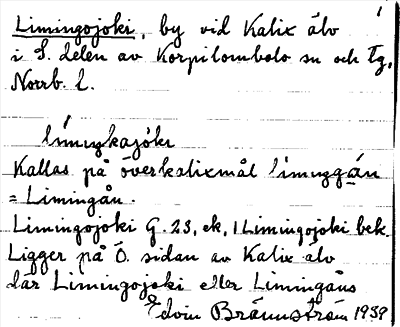 1
Limingojoki, by vid Kalix älv
i S. delen av Korpilombolo sn och tg,
Norrb. l.
límiŋkajȯki
Kallas på överkalixmål
= Limingån.
Limingojoki G. 23, ek, 1 Limingojoki bek.
Ligger på Ö. sidan av Kalix älv
där Limingojoki eller Limingåns
Edvin Brännström 1939